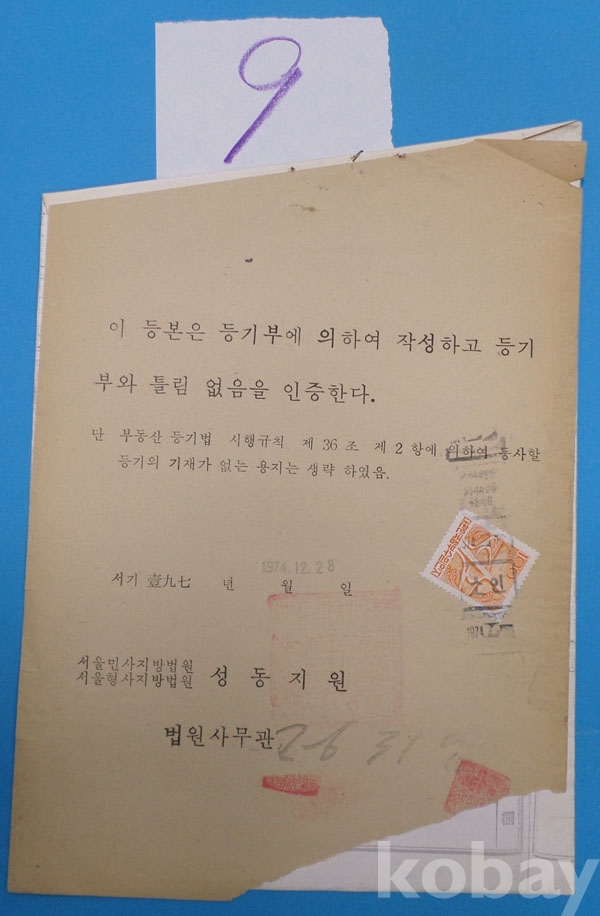 9
이 등본은 등기부에 의하여 작성하고 등기
부와 틀림 없음을 인증한다.
단 부동산 등기법 시행규칙 제 36 조 제 2 항에 의하여 등사할
등기의 기재가 없는 용지는 생략 하였음.
1974.12.28
서기 壹九七 년 월 일
서울민사지방법원
서울형사지방법원
성동지원
법원사무관
kobay